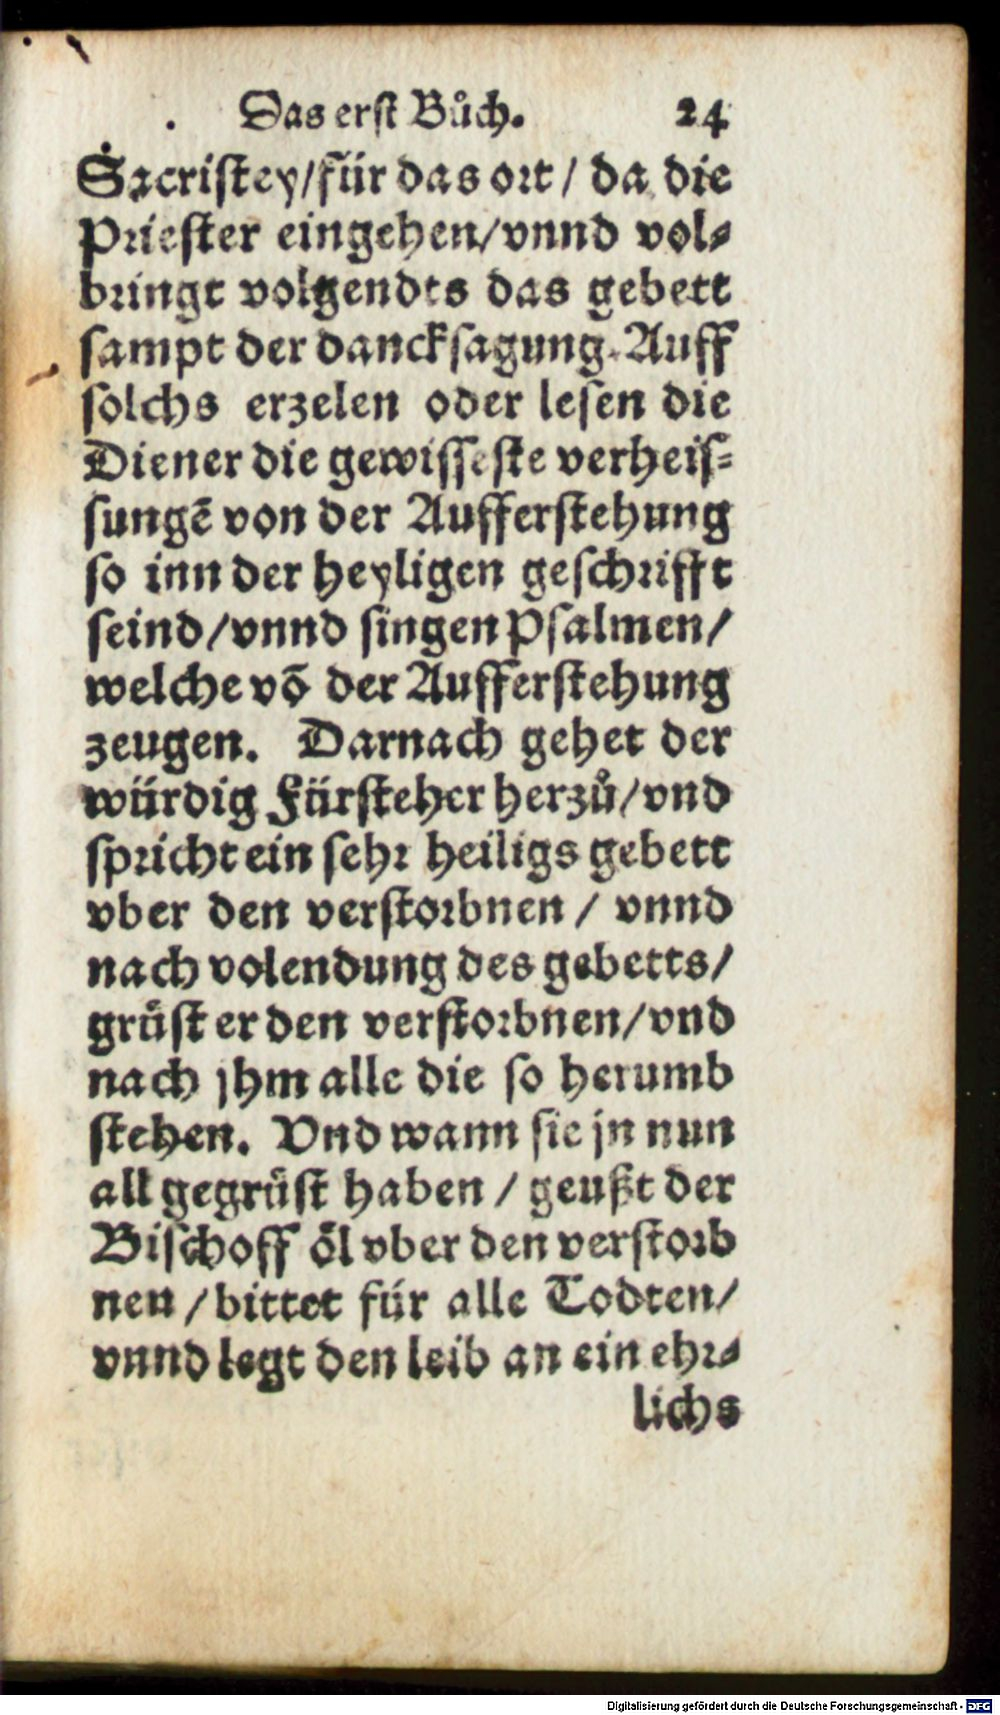 Das erst Bůch. 24
Sacristey/für das ort/ da die
Priester eingehen/vnnd vol-
bringt volgendts das gebett
sampt der dancksagung. Auff
solchs erzelen oder lesen die
Diener die gewisseste verheis=
sungē von der Aufferstehung
so inn der heyligen geschrifft
seind/vnnd singen Psalmen/
welche vō der Aufferstehung
zeugen. Darnach gehet der
würdig Fürsteher herzů/vnd
spricht ein sehr heiligs gebett
vber den verstorbnen/ vnnd
nach volendung des gebetts/
grüst er den verstorbnen/vnd
nach jhm alle die so herumb
stehen. Vnd wann sie jn nun
all gegrüst haben/ geußt der
Bischoff öl vber den verstorb
nen/bittet für alle Todten/
vnnd legt den leib an ein ehr-
lichs
Digitalisierung gefördert durch die Deutsche Forschungsgemeinschaft - DFG